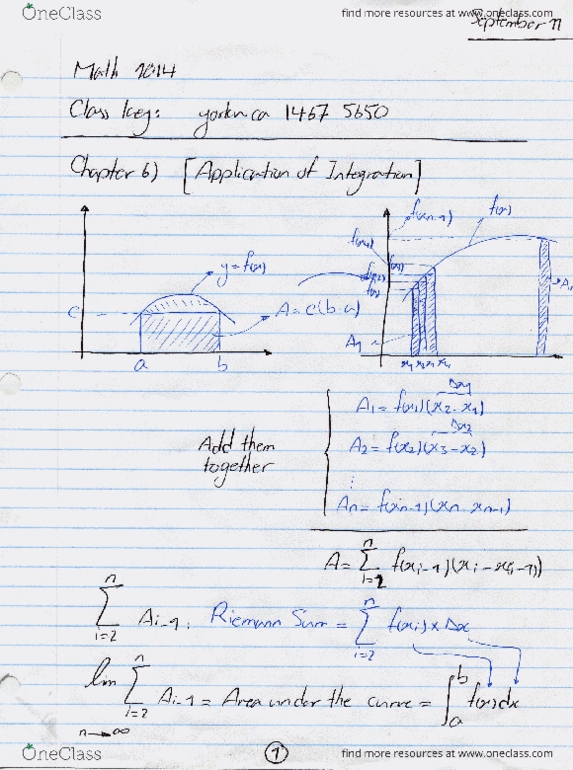 OneClass
find more resources at www.oneclass.com
September 11
Math 1014
Class key: yorku.ca 1467 5650
Chapter 6) [Application of Integration]
f(xn-1)
f(x)
y=f(x)
c
A=c(b-a)
A1
a b
x1 x2 x3 x4
Δx1
A1= f(x1)(x2-x1)
Δx2
Add them
together
A2= f(x2)(x3-x2)
⋮
An= f(xn-1)(xn-xn-1)
A= n Σ i=2 f(xi-1)(xi-xi-1)
n Σ i=2 Ai-1: Riemann Sum = n Σ i=2 f(xi)×Δx
lim n→∞ n Σ i=2 Ai-1 = Area under the curve = ∫ b a f(x)dx
OneClass
1
find more resources at www.oneclass.com